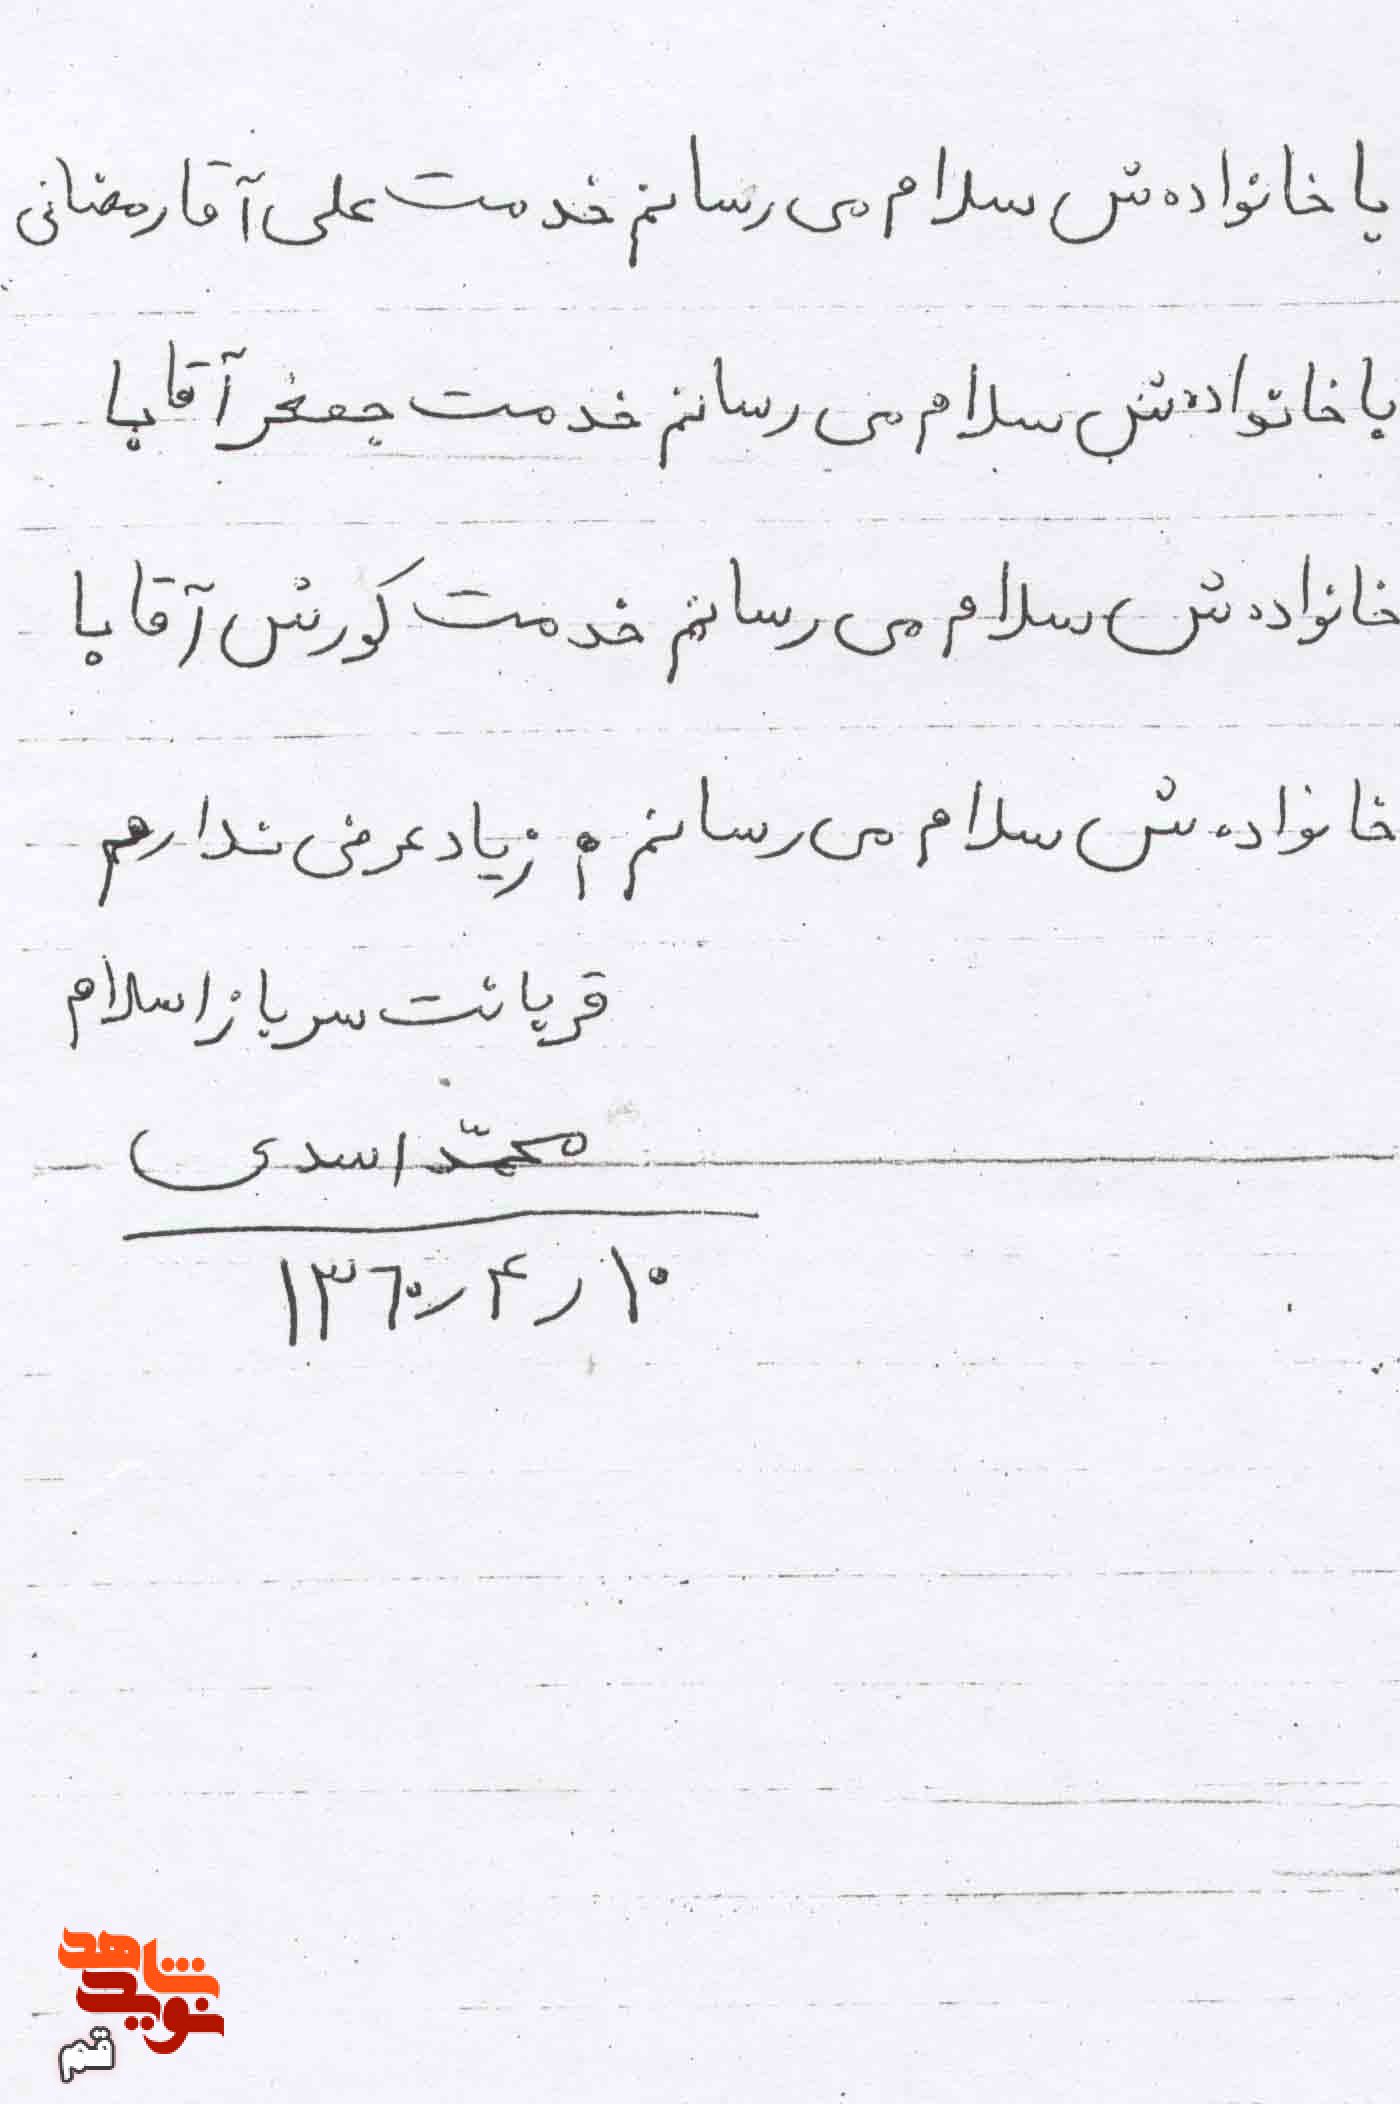 با خانواده ش سلام می رسانم خدمت علی آقا رمضانی
با خانواده ش سلام می رسانم خدمت جعفر آقا با
خانواده ش سلام می رسانم خدمت کورش آقا با
خانواده ش سلام می رسانم زیاد عرضی ندارم
قربانت سرباز اسلام
محمّد اسدی
۱۳۶۰٫۴٫۱۰
شاهد
نوید
قم